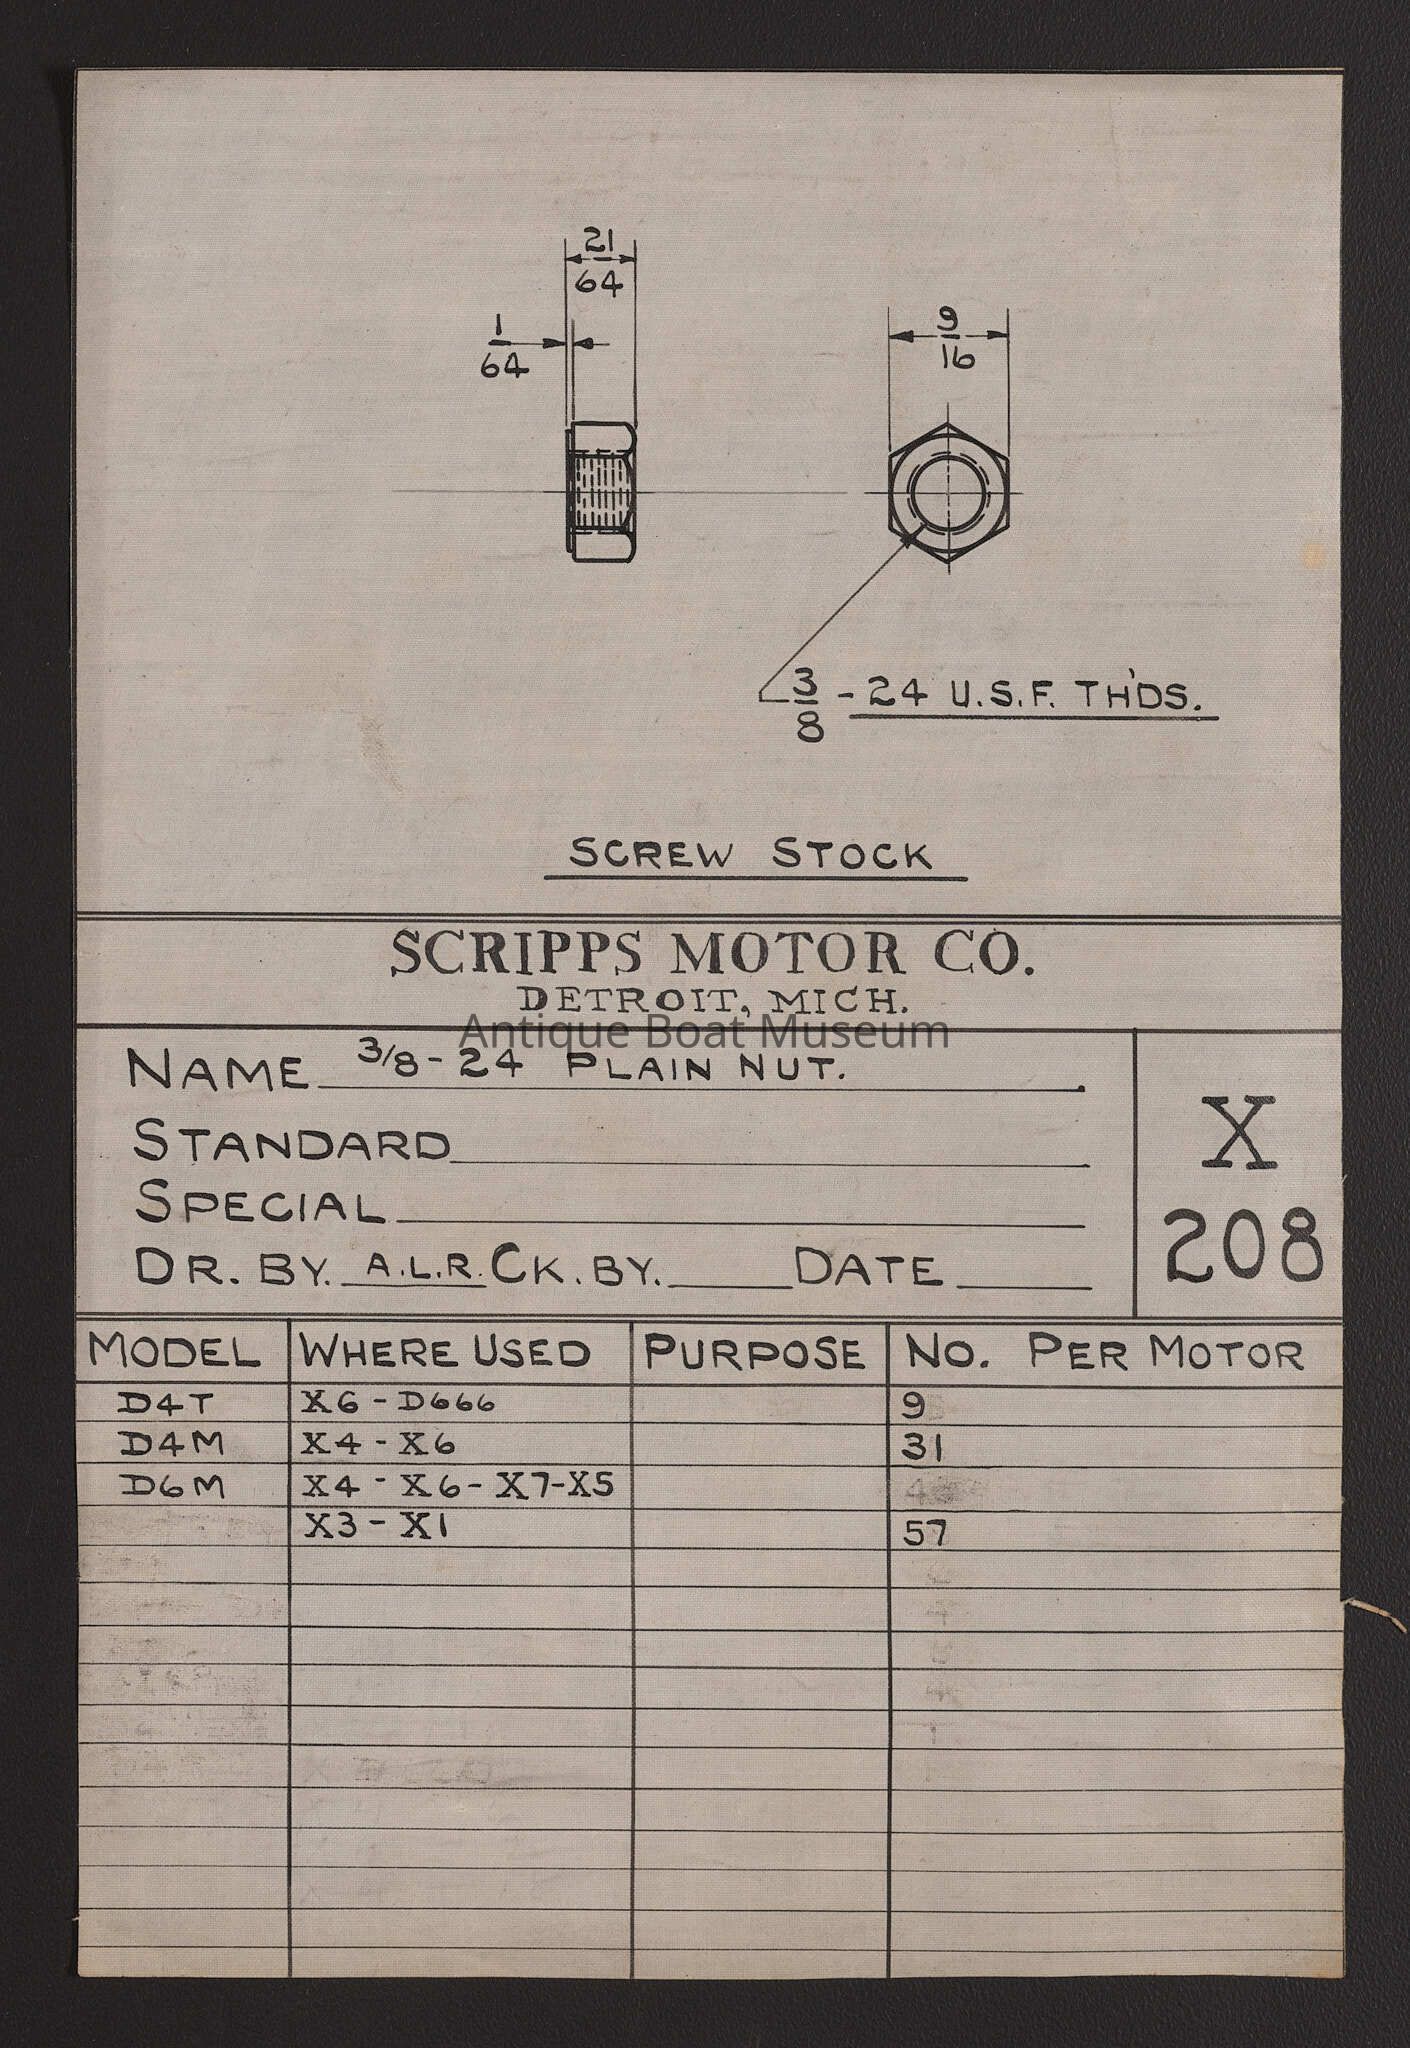 21
64
1
64
9
16
3/8 - 24 U.S.F. TH'DS.
SCREW STOCK
SCRIPPS MOTOR CO.
DETROIT, MICH.
Antique Boat Museum
NAME 3/8 - 24 PLAIN NUT.
STANDARD
SPECIAL
DR. BY. A.L.R. CK. BY. DATE
X
208
MODEL WHERE USED PURPOSE NO. PER MOTOR
D4T X6 - D666 9
D4M X4 - X6 31
D6M X4 - X6 - X7 - X5
X3 - X1 57